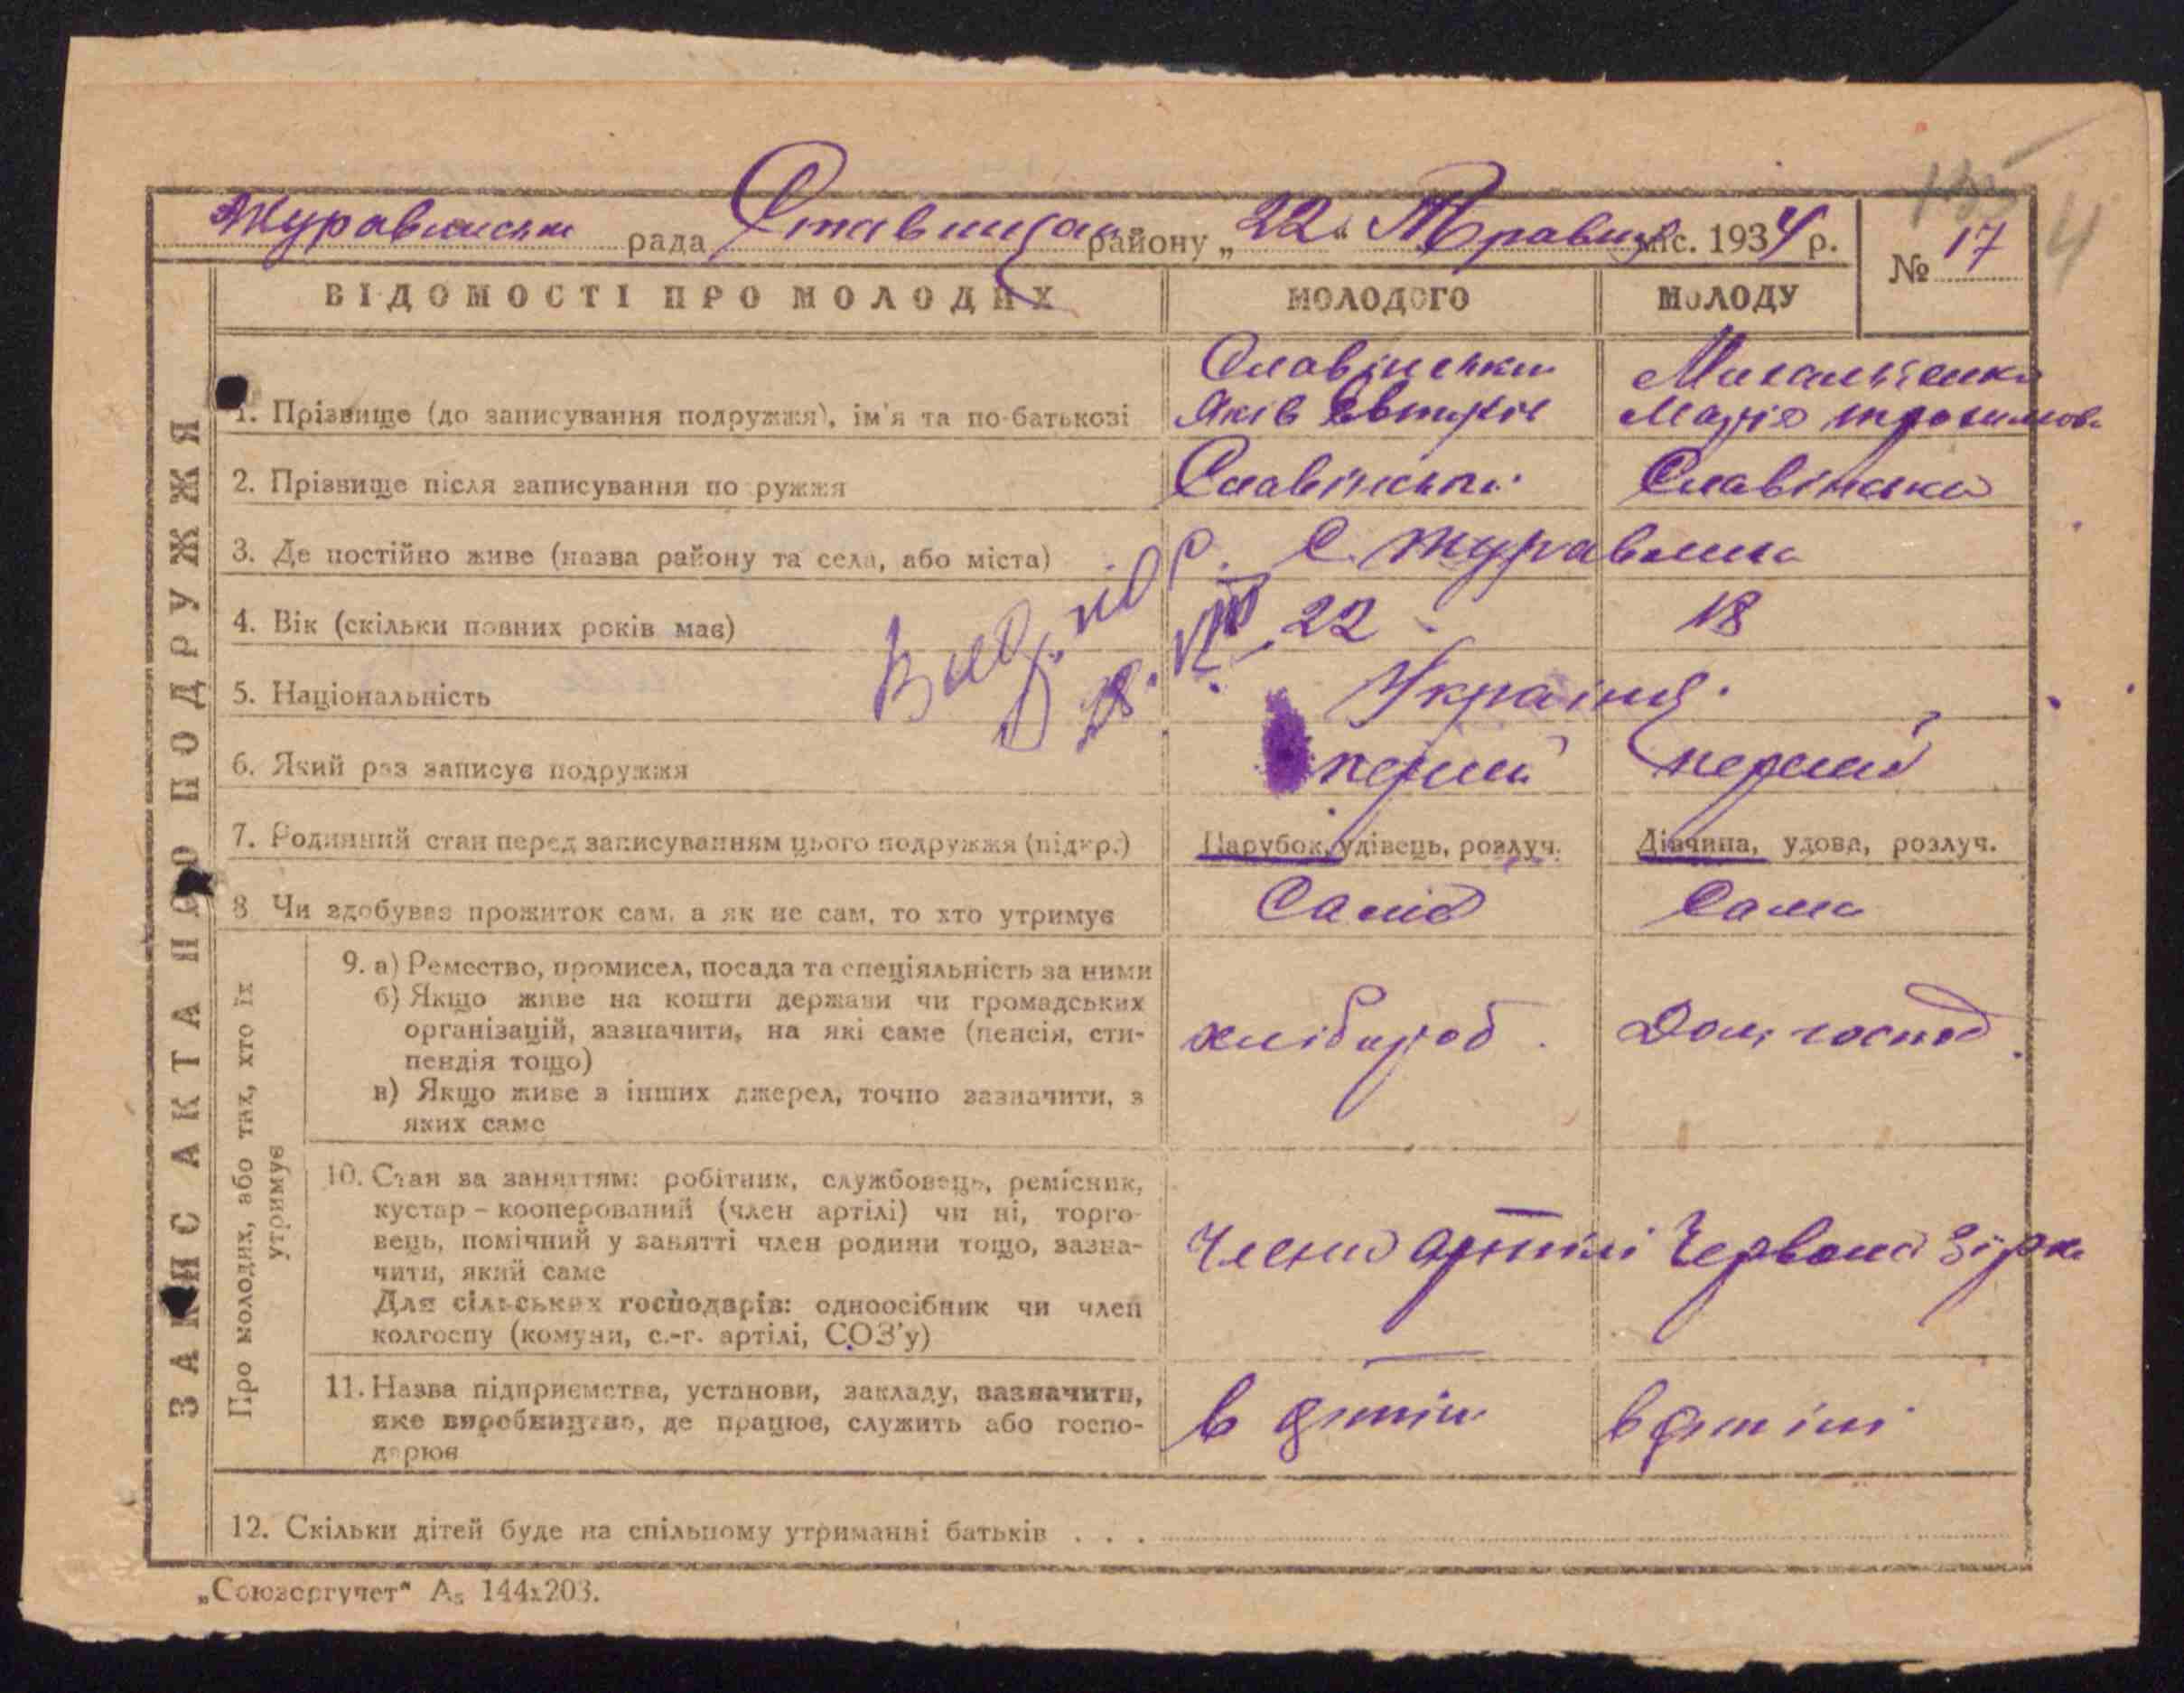 Журавлиська рада Ставищан району „22“ Травня міс. 1934 р.
№ 17
4
ЗАПИС АКТА ПРО ПОДРУЖЖЯ
ВІДОМОСТІ ПРО МОЛОДИХ МОЛОДОГО МОЛОДУ
1. Прізвище (до записування подружжя), ім'я та по-батькові
Славінський
Яків
Марія
2. Прізвище після записування по ружжя Славінський Славінська
3. Де постійно живе (назва району та села, або міста) С. Журавлиха
4. Вік (скільки повних років має) 22 18
5. Національність Українці
6. Який раз записує подружжя перший перший
7. Родинний стан перед записуванням цього подружжя (підкр.) Парубок, удівець, розлуч. Дівчина, удова, розлуч.
8 Чи здобував прожиток сам, а як не сам, то хто утримує Самід Сама
Про молодих, або тих, хто їх
утримує
9. а) Ремество, промисел, посада та спеціяльність за ними
б) Якщо живе на кошти держави чи громадських
організацій, зазначити, на які саме (пенсія, сти-
пендія тощо)
в) Якщо живе з інших джерел, точно зазначити, з
яких саме
хлібороб. Дом. господ.
10. Стан за заняттям: робітник, службовець, ремісник,
кустар – кооперований (член артілі) чи ні, торго-
вець, помічний у занятті член родини тощо, зазна-
чити, який саме
Для сільських господарів: одноосібник чи член
колгоспу (комуни, с.-г. артілі, СОЗ'у)
Члени артілі Червона Зірка
11. Назва підприємства, установи, закладу, зазначити,
яке виробництво, де працює, служить або госпо-
дарює
в артілі в артілі
12. Скільки дітей буде на спільному утриманні батьків . . .
„Союзоргучет“ А₅ 144х203.